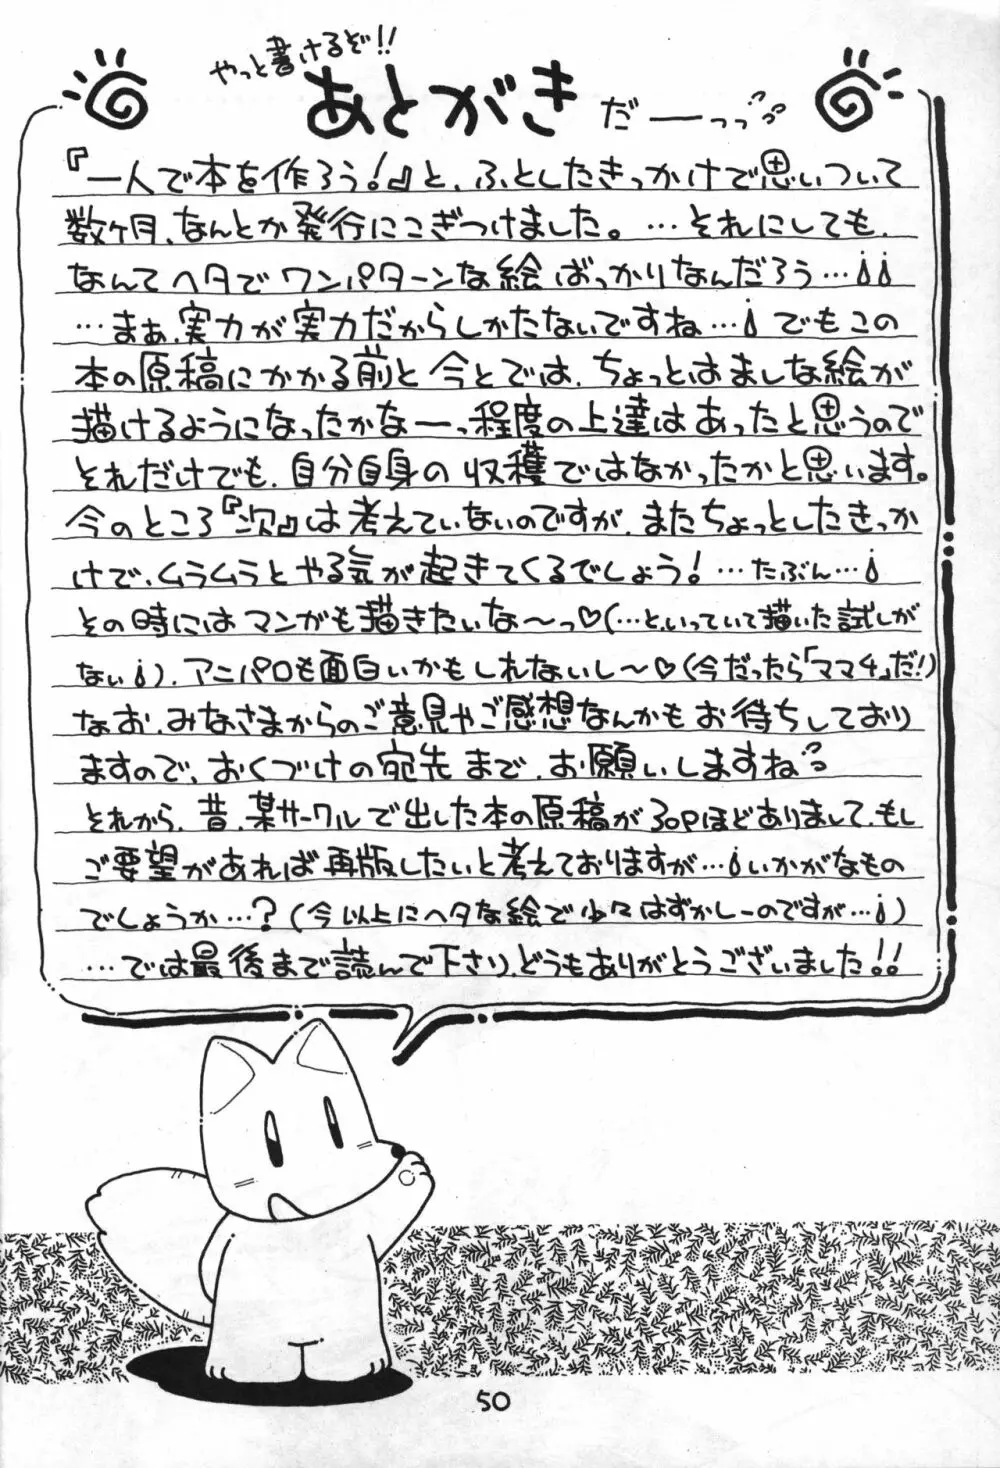 やっと書けるぞ!!
あとがきだーーっっ
『一人で本を作ろう!』と、ふとしたきっかけで思いついて
数ヶ月、なんとか発行にこぎつけました。…それにしても、
なんてヘタでワンパターンな絵ばっかりなんだろう…
…まぁ、実力が実力だからしかたないですね…でもこの
本の原稿にかかる前と今とでは、ちょっとはましな絵が
描けるようになったかなーっ程度の上達はあったと思うので
それだけでも、自分自身の収穫ではなかったかと思います。
今のところ『次』は考えていないのですが、またちょっとしたきっか
けで、ムラムラとやる気が起きてくるでしょう!…たぶん…
その時にはマンガも描きたいな〜っ♡(…といっていて描いた試しが
ない)、アニパロも面白いかもしれないし〜♡(今だったら「ママ4」だ!)
なお、みなさまからのご意見やご感想なんかもお待ちしており
ますので、おくづけの宛先まで、お願いしますね
それから、昔、某サークルで出した本の原稿が30pほどありまして、もし
ご要望があれば再版したいと考えておりますが…いかがなもの
でしょうか…?(今以上にヘタな絵で少々はずかしーのですが…)
…では最後まで読んで下さり、どうもありがとうございました!!
50